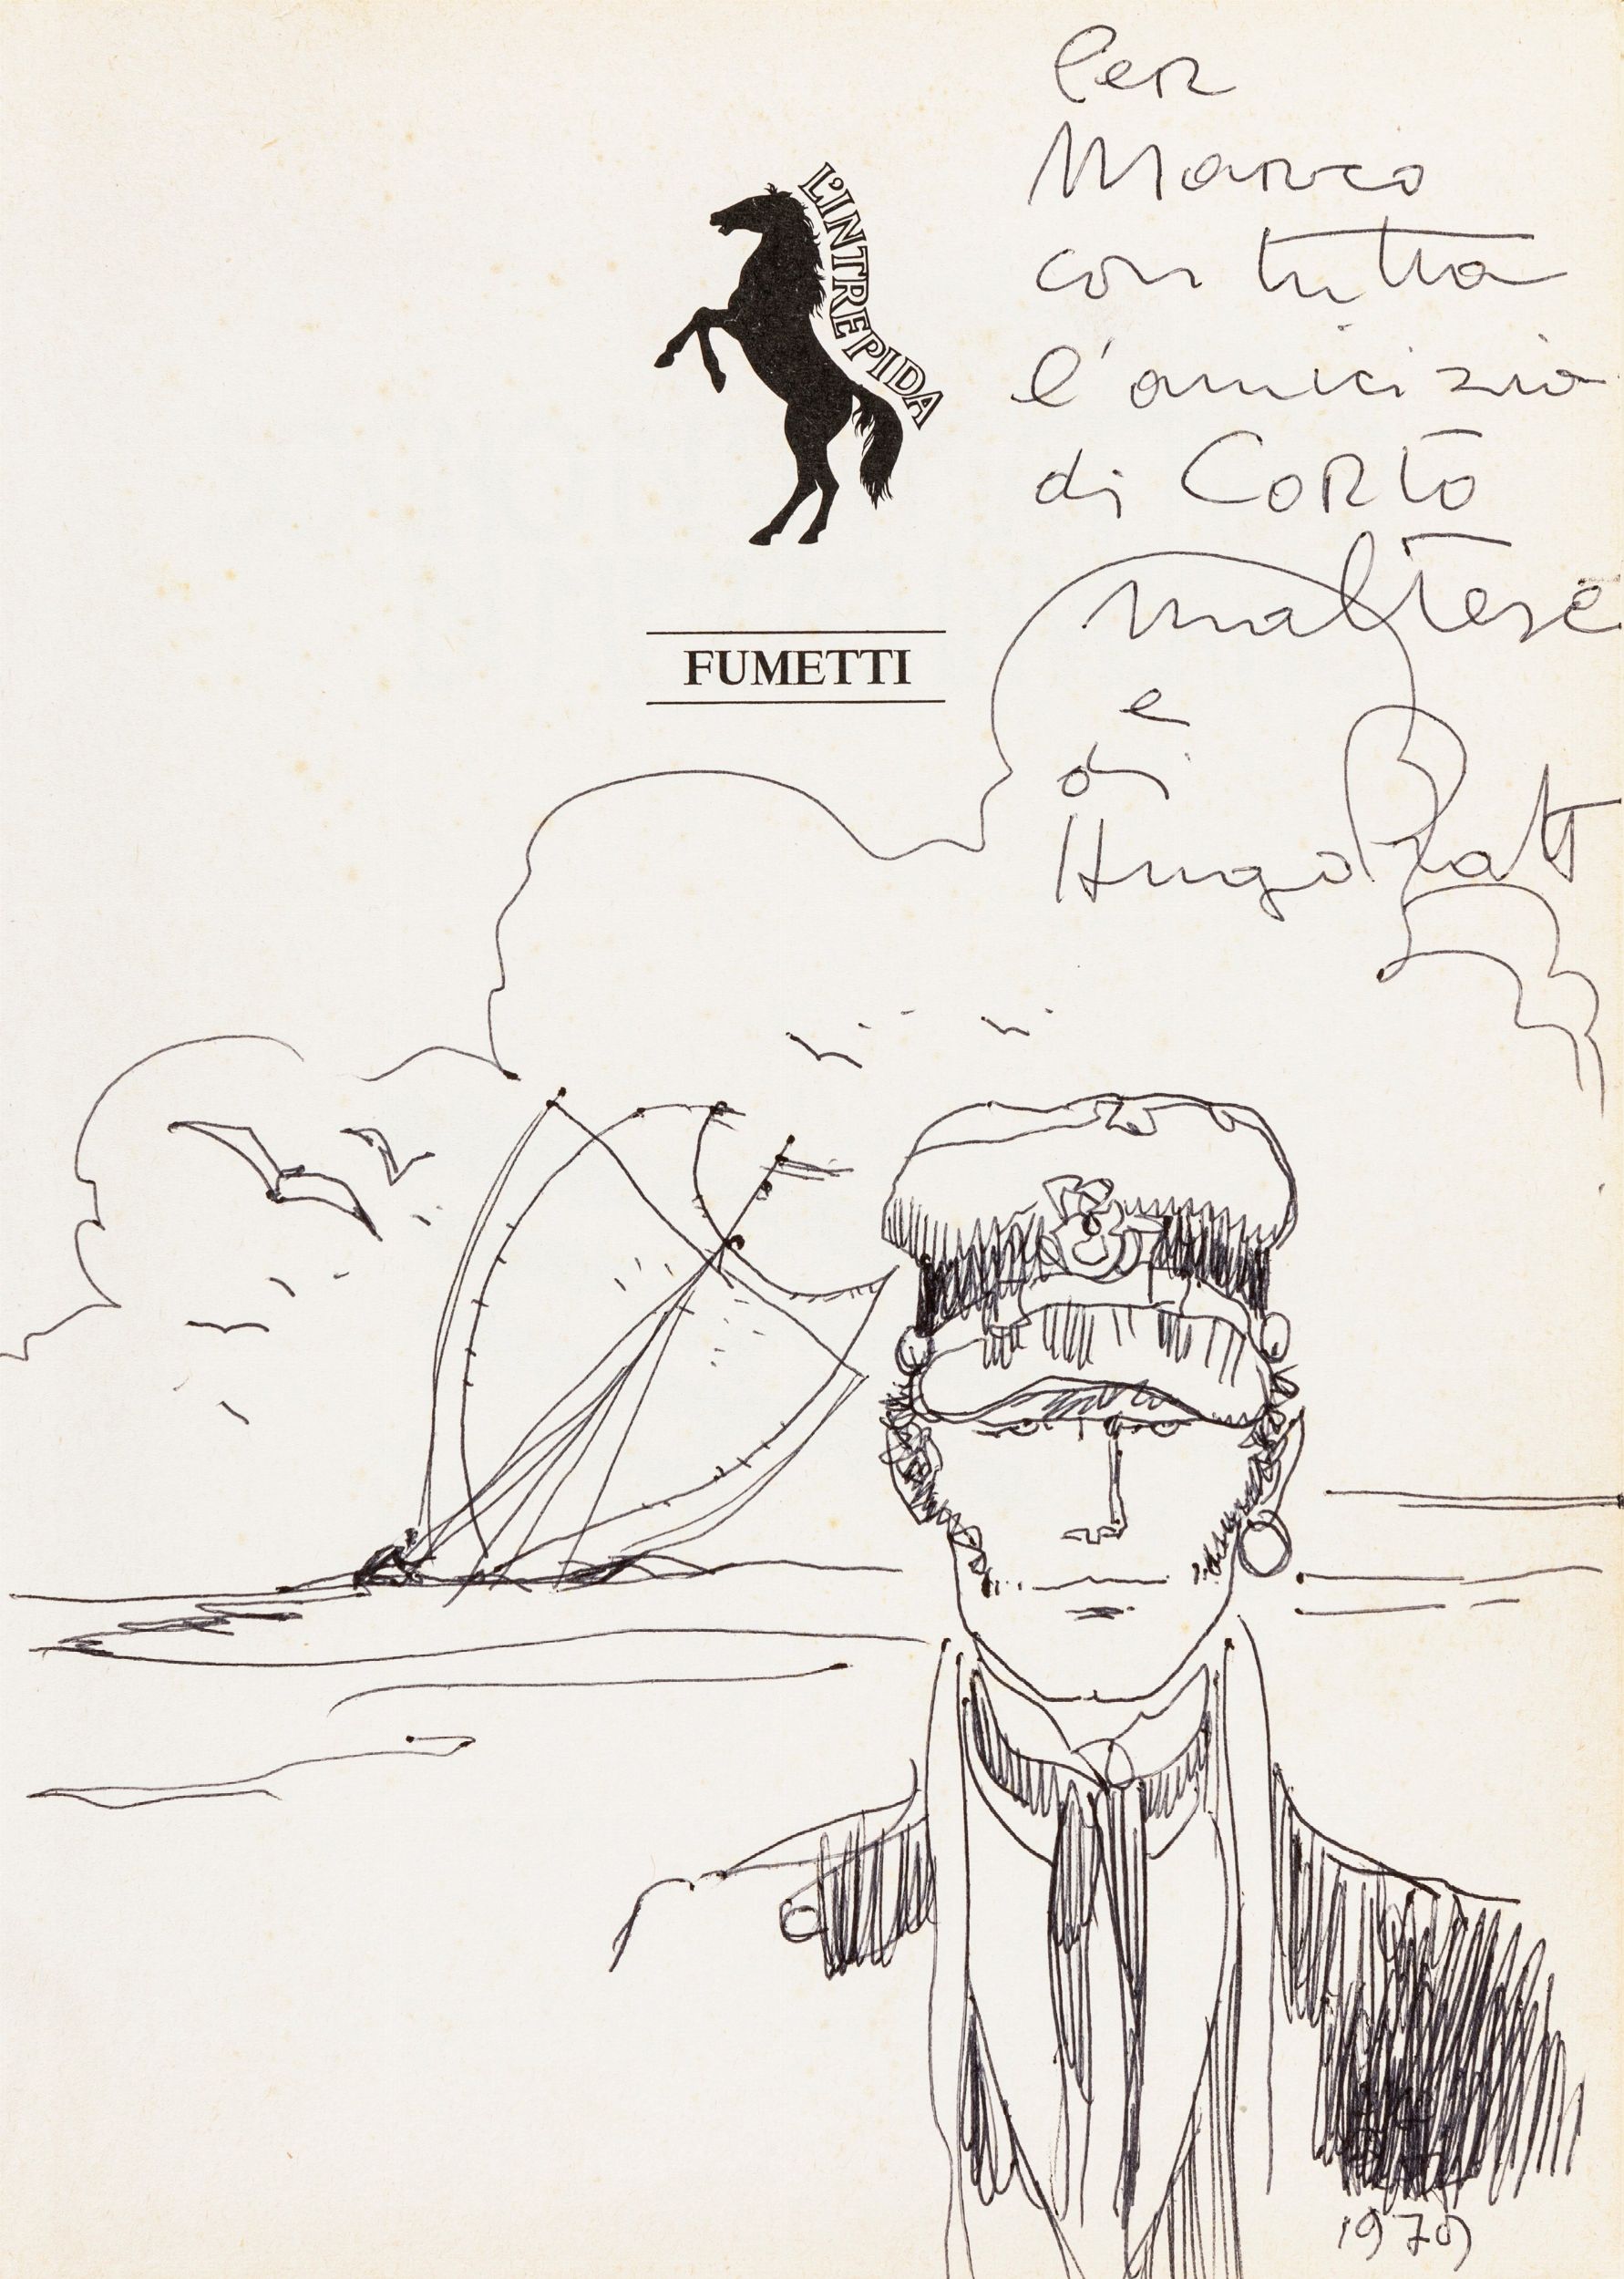 L'INTREPIDA
FUMETTI
Per
Marco
con tutta
l'amicizia
di Corto
Maltese
e
di
Hugo Pratt
1979